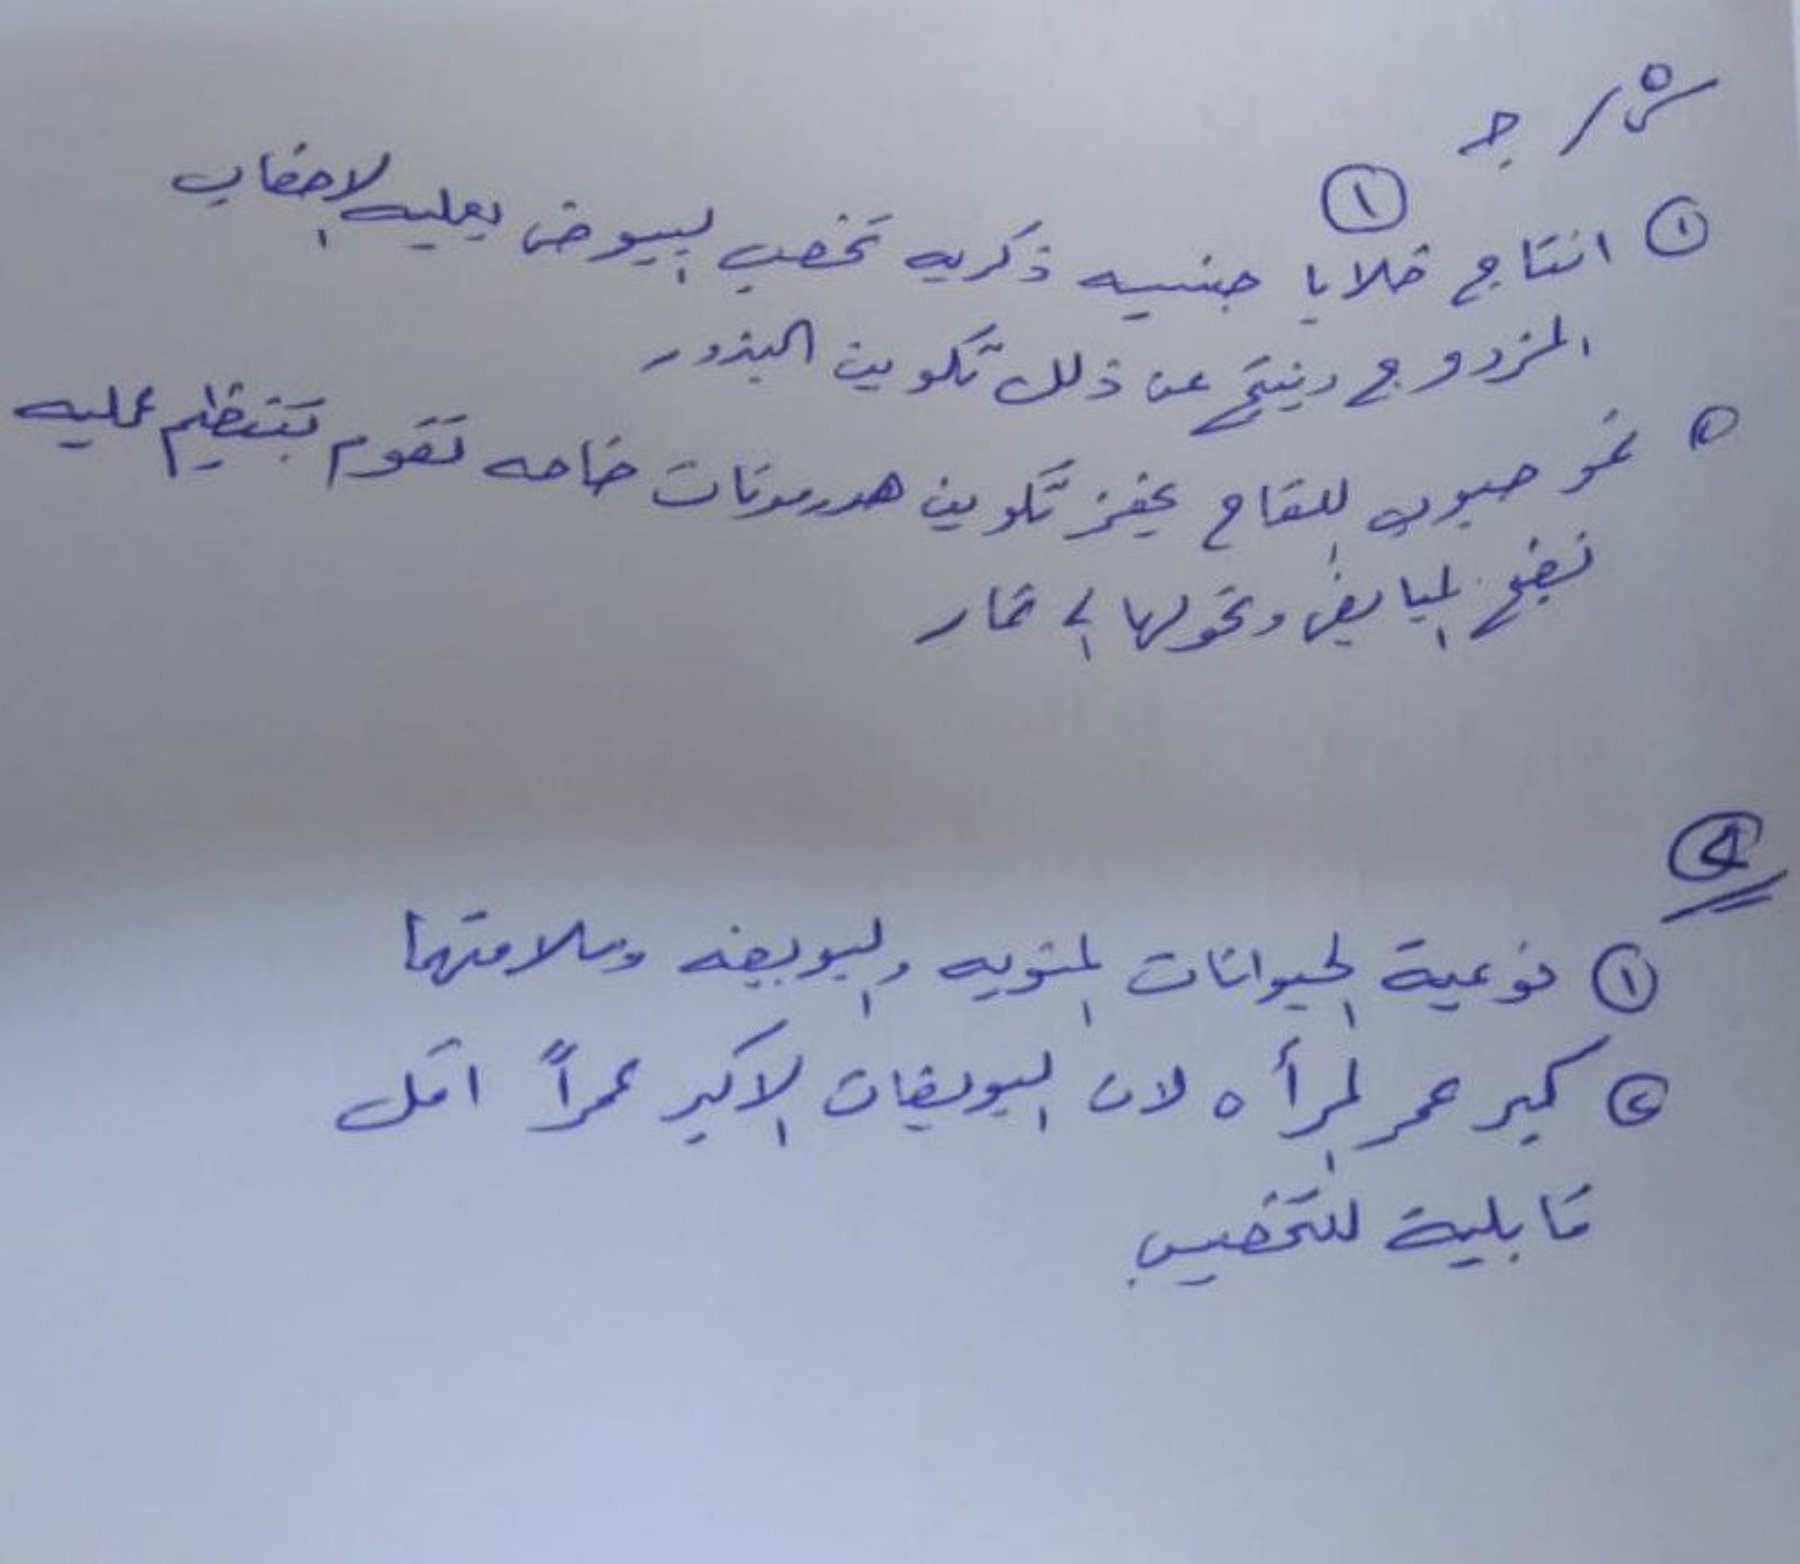 س٥ / ج
①
① انتاج خلايا جنسيه ذكريه تخصب البيوض بعمليه الاخصاب
المزدوج وينتج عن ذلك تكوين البذور
② نمو حبوب اللقاح يحفز تكوين هورمونات خاصه تقوم بتنظيم عمليه
نضج المبايض وتحولها الى ثمار
②
① نوعية الحيوانات المنويه والبويضه وسلامتهما
② كبر عمر المرأه لان البويضات الاكبر عمراً اقل
قابلية للتخصيب